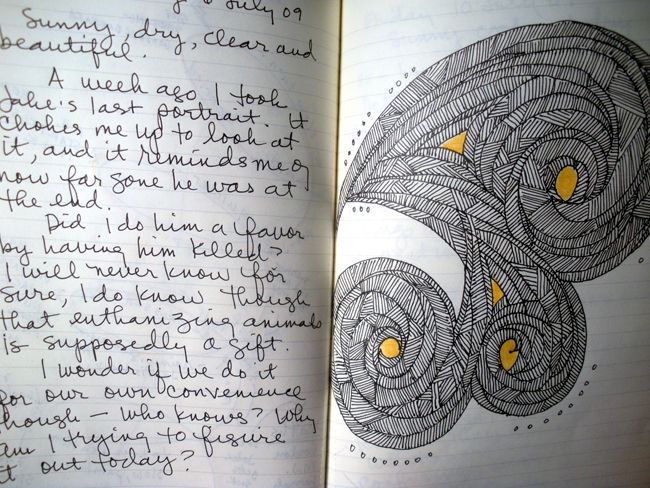 July 09
Sunny, dry, clear and
beautiful.
A week ago I took
Jake's last portrait. It
chokes me up to look at
it, and it reminds me of
how far gone he was at
the end.
Did I do him a favor
by having him killed?
I will never know for
sure, I do know though
that euthanizing animals
is supposedly a gift.
I wonder if we do it
for our own convenience
though — who knows? Why
am I trying to figure
it out today?